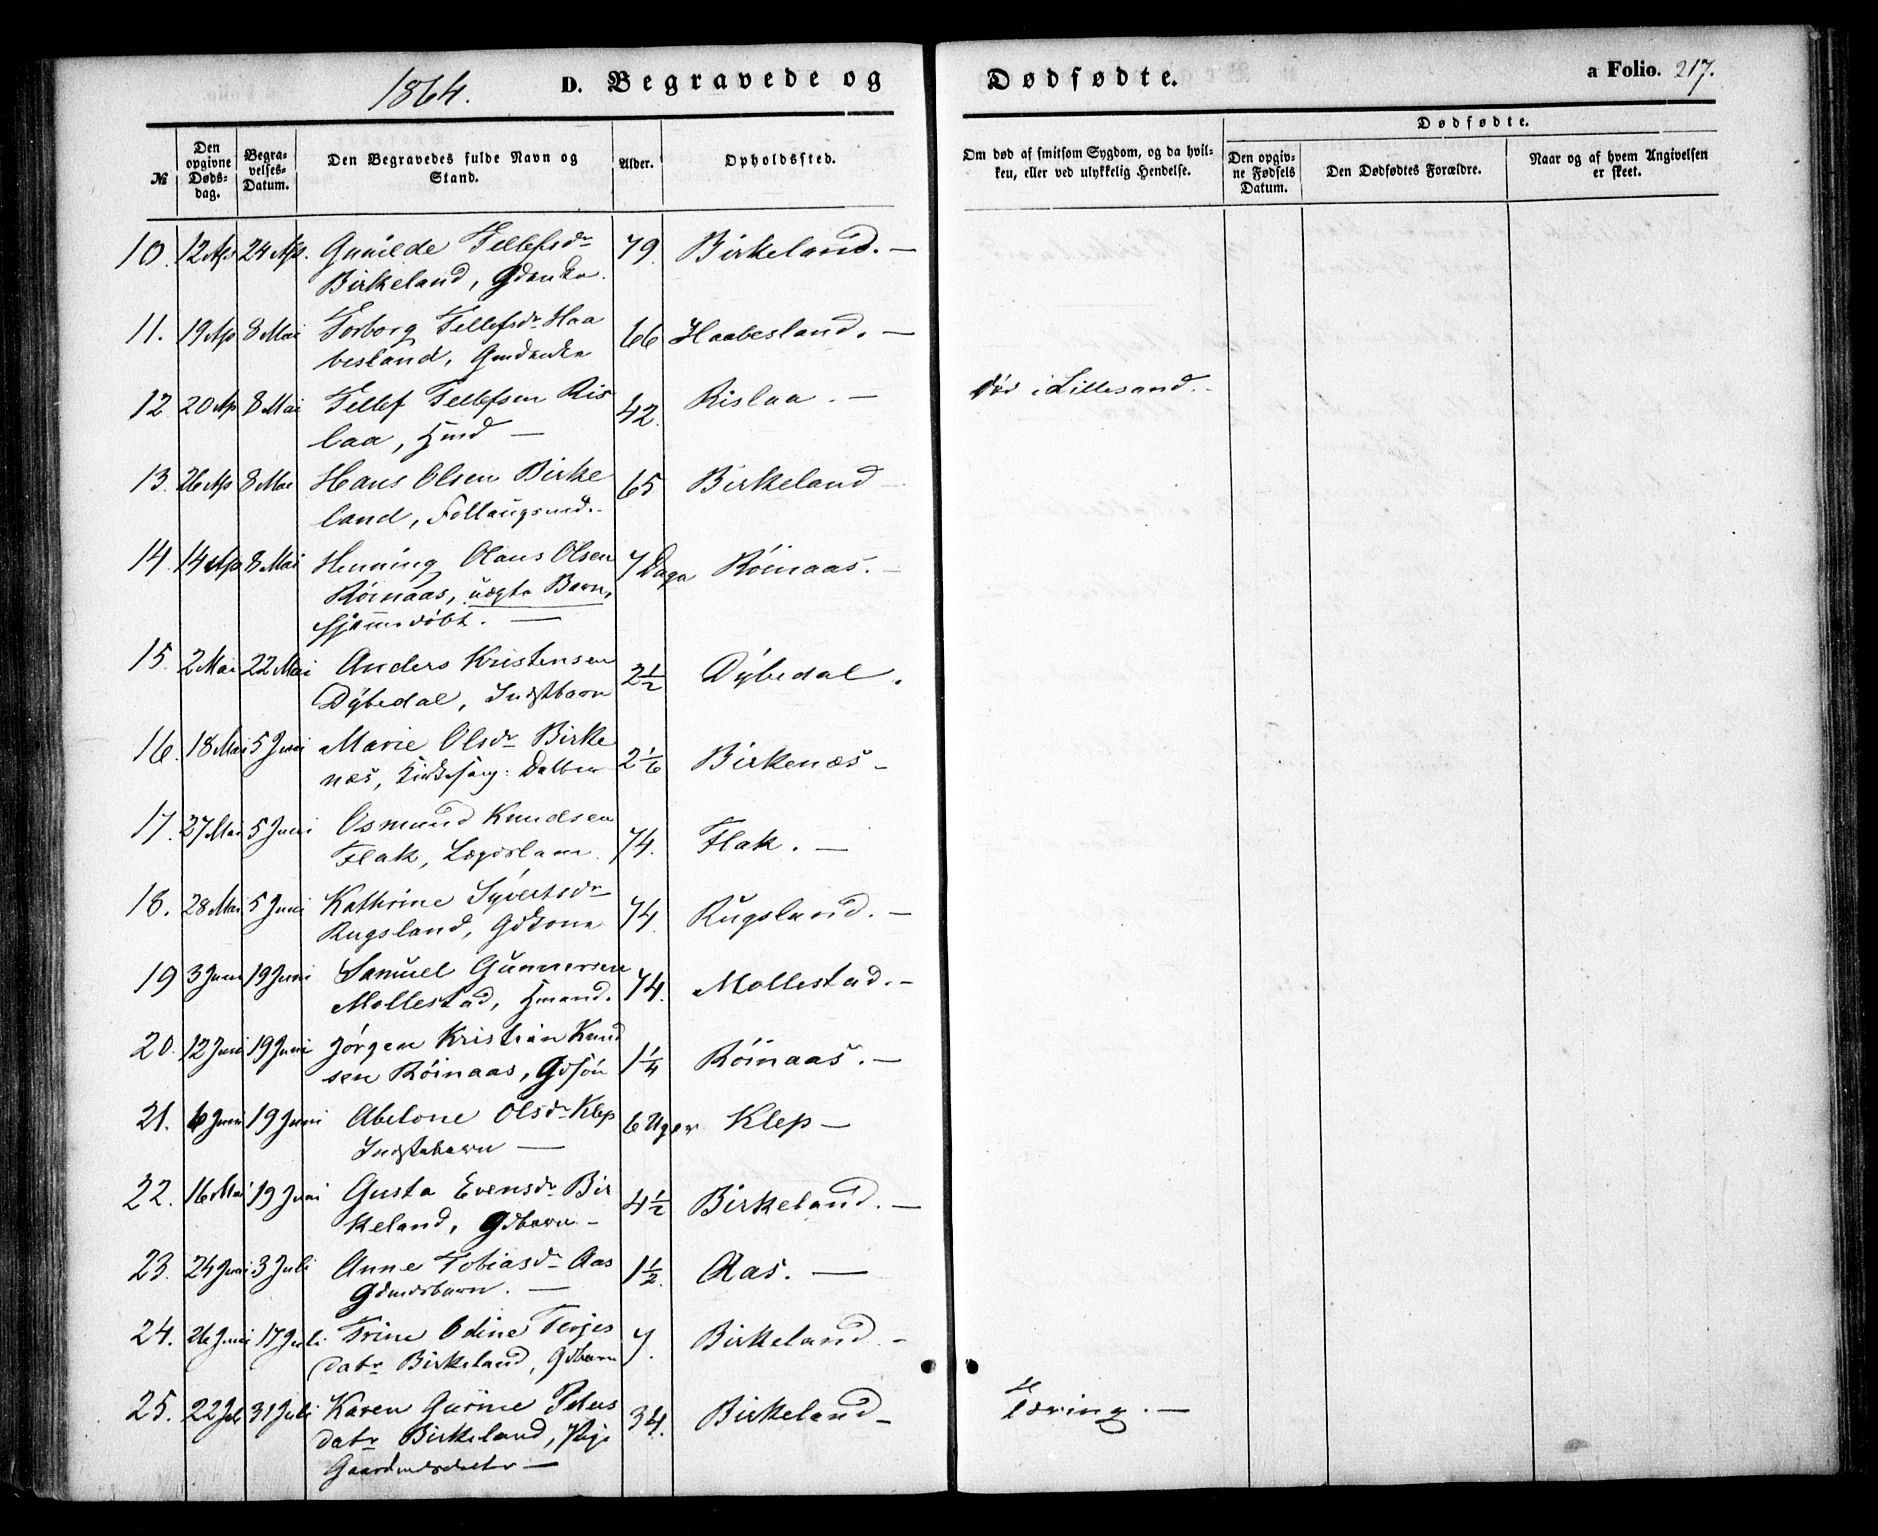 1864. D. Begravede og Dødfødte. a Folio. 217.
№ Den opgivne Dødsdag. Begravelses-Datum. Den Begravedes fulde Navn og Stand. Alder. Opholdssted. Om død af smitsom Sygdom, og da hvilken, eller ved ulykkelig Hendelse. Dødfødte. Den opgivne Fødsels Datum. Den Dødfødtes Forældre. Naar og af hvem Angivelsen er skeet.
10. 12 Ap 24 Ap. Gunilde Tellefsdr 79. Birkeland. —
Birkeland, Gdenke.
11. 19 Ap 8 Mai Torborg Tellefsdr Haa 66 Haabesland. —
besland, Gmdenke
12 20 Ap 8 Mai Tellef Tellefsen Ris 42. Rislaa. — død i Lillesand. -
laa, Hmd —
13. 26 Ap 8 Mai Hans Olsen Birke 65 Birkeland -
land, Follaugsmd.
14. 14 Ap 8 Mai Henning Olaus Olsen 7 Daga Röinaas. -
Röinaas, uægte Barn,
hjemmedöbt. —
15. 2 Mai 22 Mai Anders Kristensen 2½ Dÿbedal.
Dÿbedal, Indstbarn
16. 18 Mai 5 Juni Marie Olsdr Birke 2 1/6 Birkenæs -
næs, Kirkesang: Datter
17. 27 Mai 5 Juni Osmund Knudsen 74. Flak. —
Flak, Lægdslem.
18. 28 Mai 5 Juni Kathrine Sÿvertsdr 74. Rugsland. -
Rugsland, Gdkone
19 3 Juni 19 Juni Samuel Gunnersen 74. Mollestad. -
Mollestad, Hmand.
20. 12 Juni 19 Juni Jörgen Kristian Knud 1¼ Röinaas. -
sen Röinaas, Gdsön
21. 6 Juni 19 Juni Abelone Olsdr Klep 6 Uger Klep -
Indstebarn —
22. 16 Mai 19 Juni Gusta Evensdr Bir 4½ Birkeland. -
keland, Gdbarn -
23. 24 Juni 3 Juli Anne Tobiasdr Aas 1½. Aas. —
Gdmdsbarn. —
24. 26 Juni 17 Juli Trine Odine Terjes 7. Birkeland. -
datr Birkeland, Gdbarn
25. 22 Jul 31 Juli Karen Gurine Peders 34. Birkeland - Tæring. —
datr Birkeland, Pige
Gaardmdsdatter —